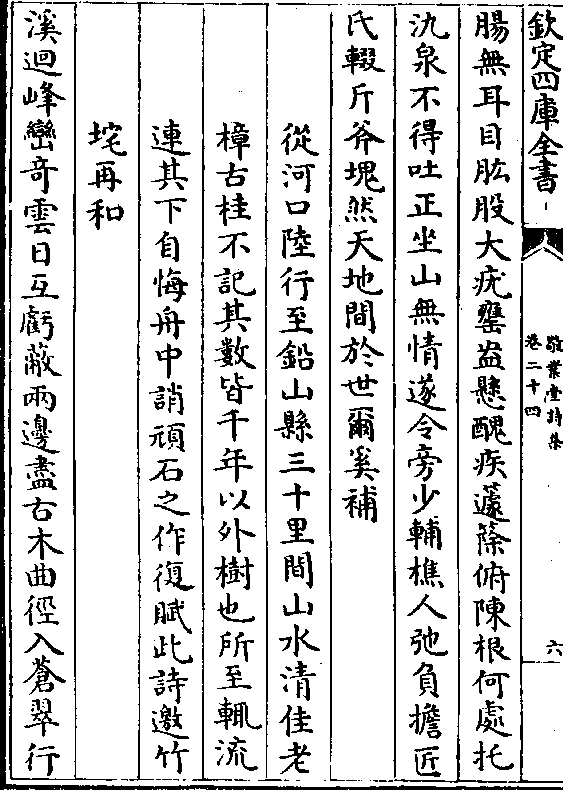 欽定四庫全書
敬業堂詩集
卷二十四
六
腸無耳目肱股大疣罌盎懸醜疾蘧篨俯陳根何處托
氿泉不得吐正坐山無情遂令旁少輔樵人弛負擔匠
氏輟斤斧塊然天地間於世爾奚補
從河口陸行至鉛山縣三十里間山水清佳老
樟古桂不記其數皆千年以外樹也所至輒流
連其下自悔舟中誚頑石之作復賦此詩邀竹
垞再和
溪迴峰巒奇雲日互虧蔽兩邊盡古木曲徑入蒼翠行